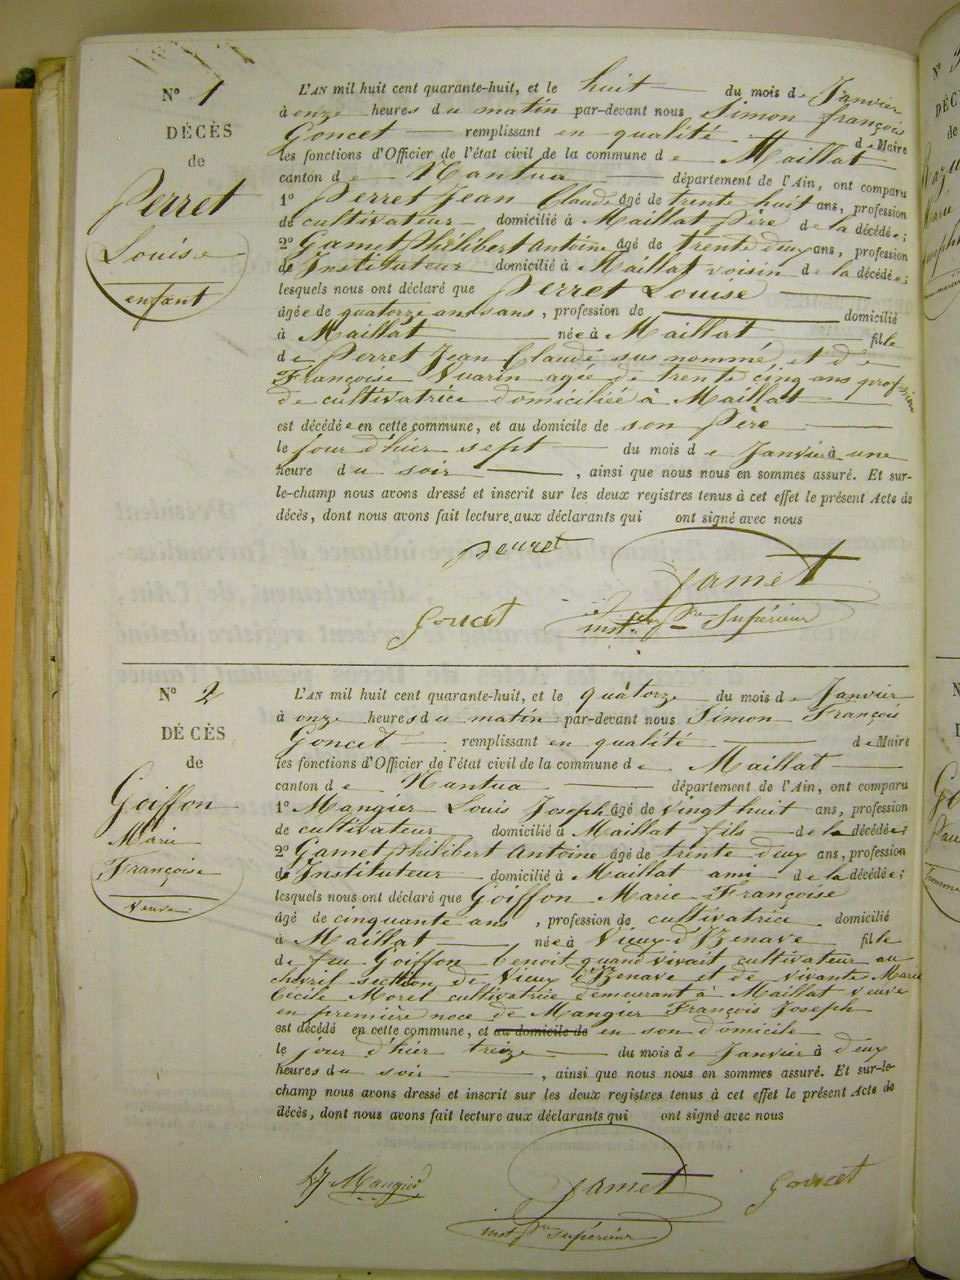 N° 1
DÉCÈS
de
Perret
Louise
enfant
L'AN mil huit cent quarante-huit, et le huit du mois de Janvier
à onze heures du matin par-devant nous Simon françois
Goncet remplissant en qualité de Maire
les fonctions d'Officier de l'état civil de la commune de Maillat
canton de Nantua département de l'Ain, ont comparu
1° Perret Jean Claude âgé de trente huit ans, profession
de cultivateur domicilié à Maillat Père de la décédée;
2° Gamet Philibert Antoine âgé de trente deux ans, profession
de Instituteur domicilié à Maillat voisin de la décédée;
lesquels nous ont déclaré que Perret Louise
âgée de quatorze ans ans, profession de domicilié
à Maillat née à Maillat fille
de Perret Jean Claude sus nommé et de
Françoise Vuarin agée de trente cinq ans profession
de cultivatrice domiciliée à Maillat
est décédée en cette commune, et au domicile de son Père
le jour d'hier sept du mois de Janvier à une
heure du soir , ainsi que nous nous en sommes assuré. Et sur-
le-champ nous avons dressé et inscrit sur les deux registres tenus à cet effet le présent Acte de
décès, dont nous avons fait lecture aux déclarants qui ont signé avec nous
peuret
Gamet
Goncet
supérieur
N° 2
DÉCÈS
de
Goiffon
Marie
Françoise
Veuve
L'AN mil huit cent quarante-huit, et le quatorze du mois de Janvier
à onze heures du matin par-devant nous Simon François
Goncet remplissant en qualité de Maire
les fonctions d'Officier de l'état civil de la commune de Maillat
canton de Nantua département de l'Ain, ont comparu
1° Mangier Louis Joseph âgé de vingt huit ans, profession
de cultivateur domicilié à Maillat fils de la décédée;
2° Gamet philibert Antoine âgé de trente deux ans, profession
de Instituteur domicilié à Maillat ami de la décédée;
lesquels nous ont déclaré que Goiffon Marie Françoise
âgé de cinquante ans , profession de cultivatrice domicilié
à Maillat née à Vieux-d'Izenave fille
de feu Goiffon benoit quand vivait cultivateur au
chevril section de Vieux d'Izenave et de vivante Marie
Cécile Morel cultivatrice demeurant à Maillat veuve
en première noce de Mangier François Joseph
est décédé en cette commune, et au domicile de en son domicile
le jour d'hier treize du mois de Janvier à deux
heures du soir , ainsi que nous nous en sommes assuré. Et sur-le-
champ nous avons dressé et inscrit sur les deux registres tenus à cet effet le présent Acte de
décès, dont nous avons fait lecture aux déclarants qui ont signé avec nous
Mangier
Gamet
Goncet
supérieur